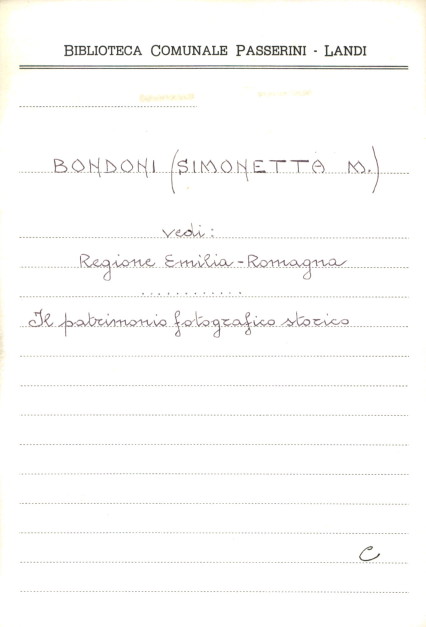 BIBLIOTECA COMUNALE PASSERINI - LANDI
BONDONI (SIMONETTA M.)
vedi:
Regione Emilia-Romagna
............
Il patrimonio fotografico storico
C